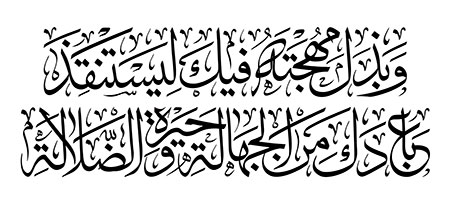 وَبَذَلَ مُهْجَتَهُ فيكَ لِيَسْتَنْقِذَ
عِبادَكَ مِنَ الْجَهالَةِ وَحَيْرَةِ الضَّلالَةِ